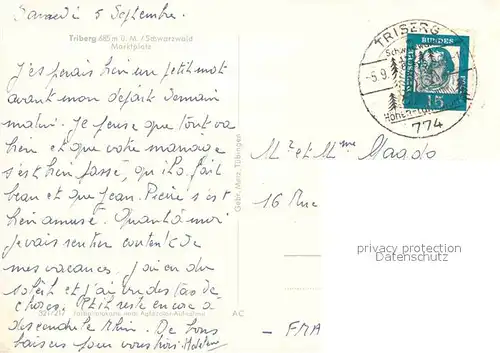 Samedi 5 Septembre.
Triberg 685 m ü. M. / Schwarzwald
Marktplatz
J'espérais bien un petit mot
avant mon départ demain
matin. Je pense que tout va
bien et que votre
s'est bien passé, qu'il a fait
beau et que Jean-Pierre s'est
bien amusé. Quant à moi
je vais rentrer contente de
mes vacances, j'ai eu du
soleil et j'ai vu des tas de
choses. reste encore à
descendre le Rhin. De bons
baisers pour vous trois.
Gebr. Metz, Tübingen
AC
TRIBERG
-5.9.
774
DEUTSCHE BUNDESPOST
15
Mr et Mme
16 Rue
- FRA
privacy protection
Datenschutz